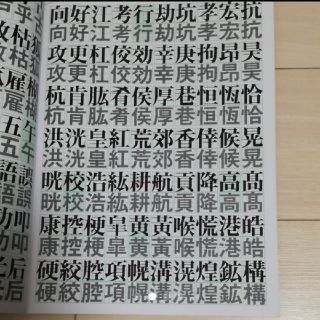 向好江考行劫坑孝宏抗
向好江考行劫坑孝宏抗
攻更杠佼効幸庚拘昂昊
攻更杠佼効幸庚拘昂昊
杭肯肱肴侯厚巷恒恆恰
杭肯肱肴侯厚巷恒恆恰
洪洸皇紅荒郊香倖候晃
洪洸皇紅荒郊香倖候晃
晄校浩紘耕航貢降高髙
晄校浩紘耕航貢降高髙
康控梗皐黄黃喉慌港皓
康控梗皐黄黃喉慌港皓
硬絞腔項幌溝滉煌鉱構
硬絞腔項幌溝滉煌鉱構